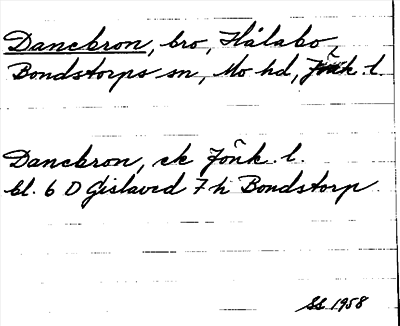 Danebron, bro, Hålabo,
Bondstorps sn, Mo hd, Jönk. l.
Danebron, ek Jönk. l.
Bl. 6 D Gislaved 7 h Bondstorp
SS 1958